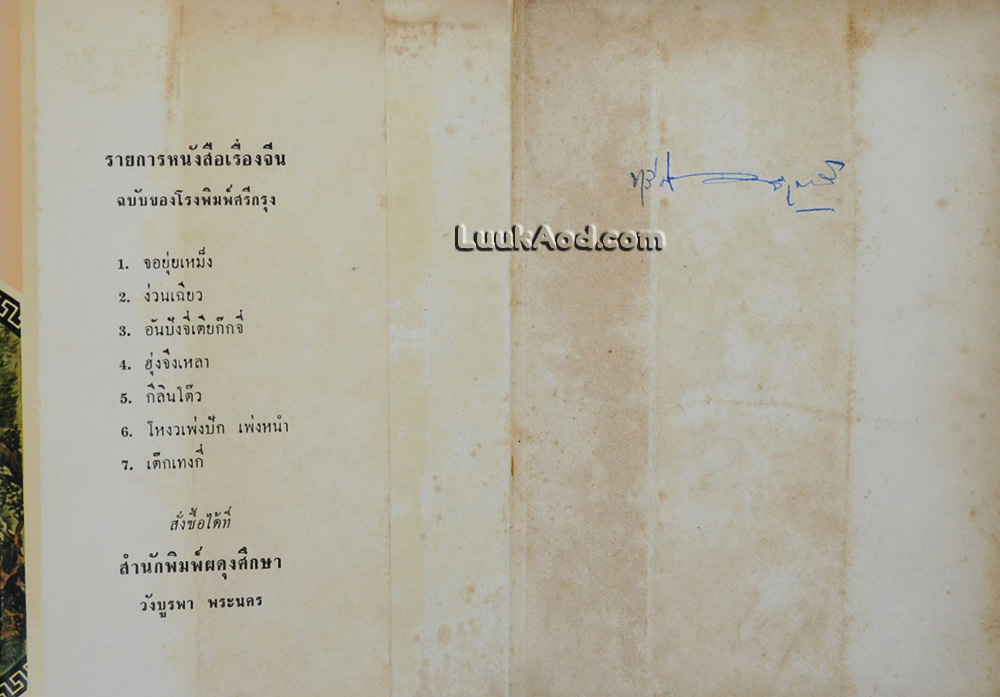 รายการหนังสือเรื่องจีน
ฉบับของโรงพิมพ์ศรีกรุง
1. จอยุ่ยเหม็ง
2. ง่วนเฉียว
3. อันปังจี่เตียก๊กจี่
4. ฮุ่งจิงเหลา
5. กิลินโต๊ว
6. โหงวเพ่งปัก เพ่งหนำ
7. เต๊กเทงกี่
สั่งซื้อได้ที่
สำนักพิมพ์ผดุงศึกษา
วังบูรพา พระนคร
LuukAod.com